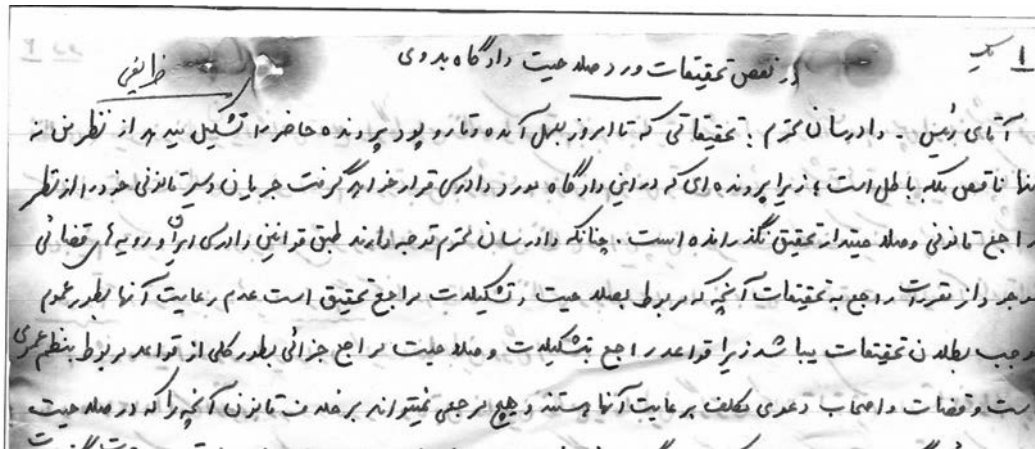 ۱
در نقص تحقیقات و رد صلاحیت دادگاه بدوی
آقای رئیس - دادرسان محترم : تحقیقاتی که تا امروز بعمل آمده و تار و پود پرونده حاضر را تشکیل میدهد از نظر من نه
تنها ناقص بلکه باطل است ؛ زیرا پرونده ای که در این دادگاه مورد دادرسی قرار خواهد گرفت جریان و سیر قانونی خود را از نظر
مراجع قانونی و صلاحیتدار تحقیق نگذرانده است . چنانکه دادرسان محترم توجه دارند طبق قوانین دادرسی ایران و رویه های قضائی
موجود از مقررات راجع به تحقیقات آنچه که مربوط بصلاحیت و تشکیلات مراجع تحقیق است عدم رعایت آنها بطور عموم
موجب بطلان تحقیقات میباشد زیرا قواعد راجع بتشکیلات و صلاحیت مراجع جزائی بطور کلی از قواعد مربوط بنظم عمومی
است و قضات و اصحاب دعوی مکلف برعایت آنها هستند و هیچ مرجعی نمیتواند بر خلاف قانون آنچه را که در صلاحیت